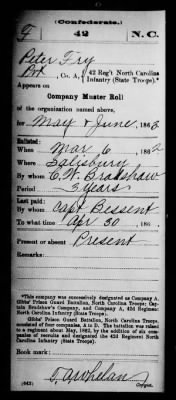 (Confederate.)
F 42 N.C.
Peter Fry
Pvt, Co. A, 42 Reg't North Carolina
Infantry (State Troops).*
Appears on
Company Muster Roll
of the organization named above,
for May & June, 1863
Enlisted:
When Mar 6, 1862
Where Salisbury
By whom C. W. Bradshaw
Period 3 years
Last paid:
By whom Capt Bessent
To what time Apr 30, 186
Present or absent Present
Remarks:
*This company was successively designated as Company A,
Gibbs' Prison Guard Battalion, North Carolina Troops; Cap-
tain Bradshaw's Company, and Company A, 42d Regiment
North Carolina Infantry (State Troops).
Gibbs' Prison Guard Battalion, North Carolina Troops,
consisted of four companies, A to D. The battalion was raised
to a regiment about May, 1862, by the addition of six com-
panies of recruits and designated the 42d Regiment North
Carolina Infantry (State Troops).
Book mark:
(642)
Copyist.